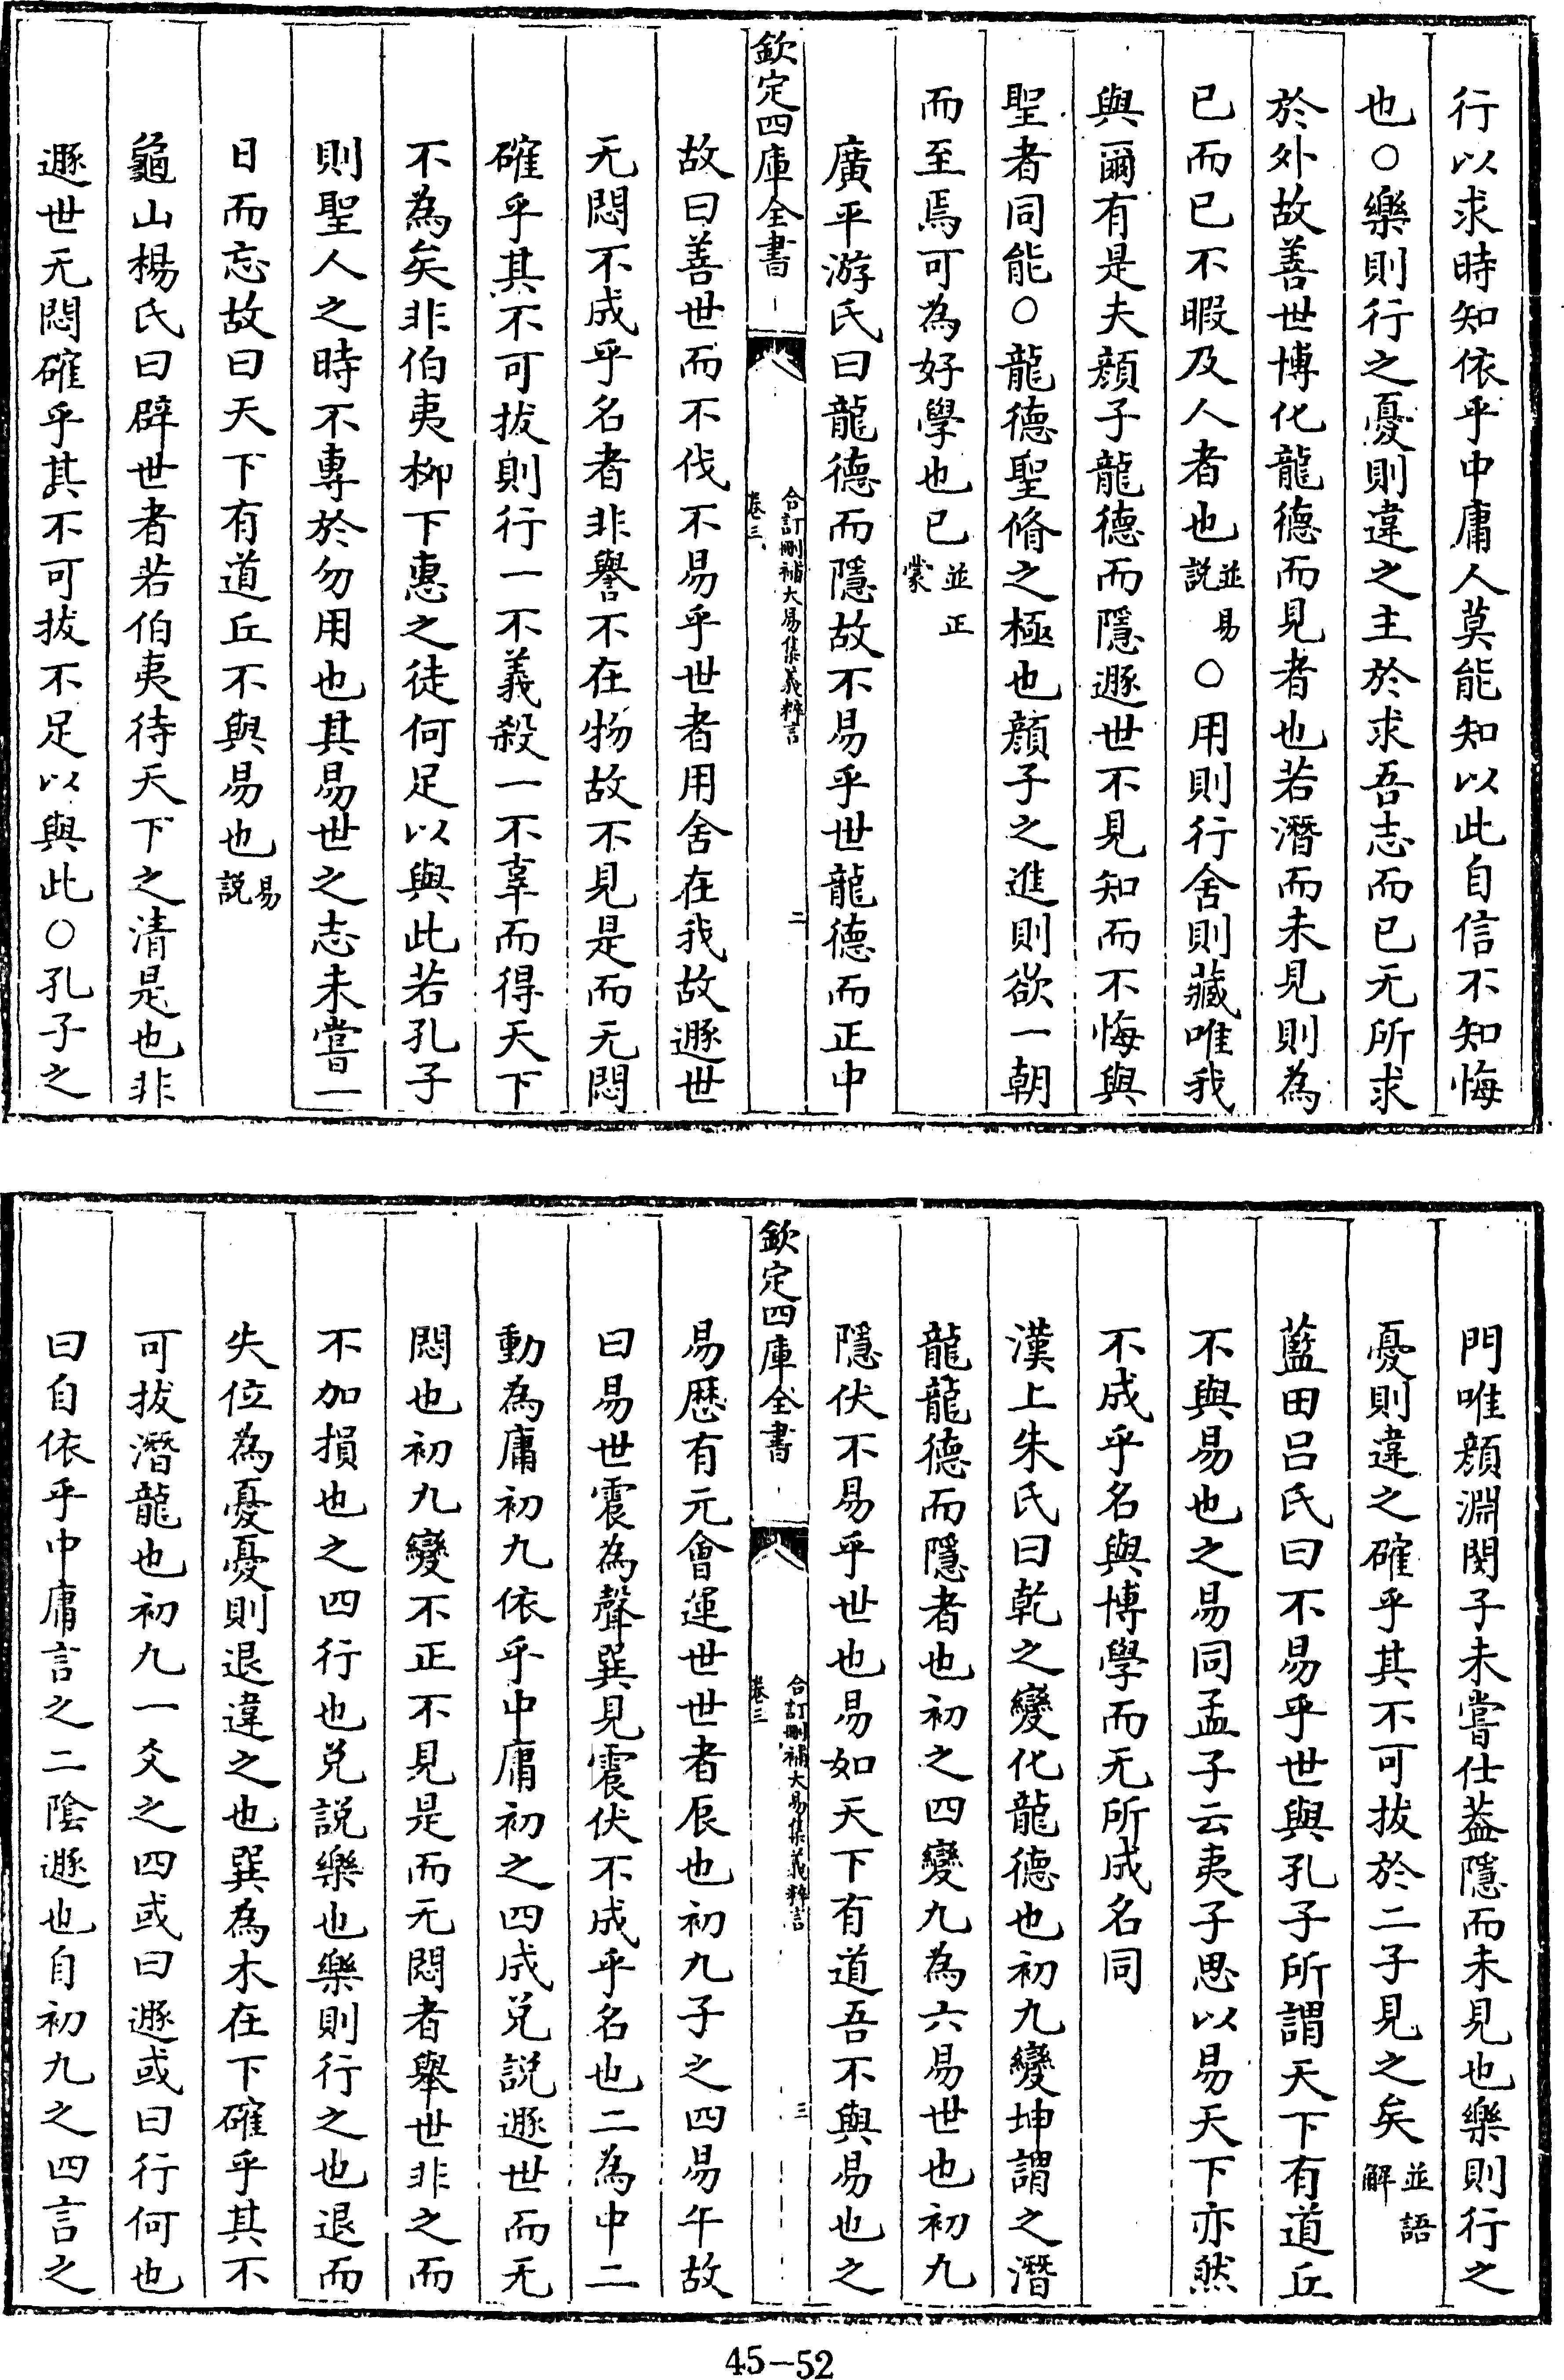 行以求時知依乎中庸人莫能知以此自信不知悔
也○樂則行之憂則違之主於求吾志而已无所求
於外故善世博化龍德而見者也若潛而未見則為
已而已不暇及人者也並易說○用則行舍則藏唯我
與爾有是夫顔子龍德而隱遯世不見知而不悔與
聖者同能○龍德聖脩之極也顔子之進則欲一朝
而至焉可為好學也已並正蒙
廣平游氏曰龍德而隱故不易乎世龍德而正中
欽定四庫全書
合訂刪補大易集義粹言
卷三
二
故曰善世而不伐不易乎世者用舍在我故遯世
无悶不成乎名者非譽不在物故不見是而无悶
確乎其不可拔則行一不義殺一不辜而得天下
不為矣非伯夷柳下惠之徒何足以與此若孔子
則聖人之時不專於勿用也其易世之志未嘗一
日而忘故曰天下有道丘不與易也易說
龜山楊氏曰辟世者若伯夷待天下之清是也非
遯世无悶確乎其不可拔不足以與此○孔子之
門唯顔淵閔子未嘗仕蓋隱而未見也樂則行之
憂則違之確乎其不可拔於二子見之矣並語解
藍田呂氏曰不易乎世與孔子所謂天下有道丘
不與易也之易同孟子云夷子思以易天下亦然
不成乎名與博學而无所成名同
漢上朱氏曰乾之變化龍德也初九變坤謂之潛
龍龍德而隱者也初之四變九為六易世也初九
隱伏不易乎世也易如天下有道吾不與易也之
欽定四庫全書
合訂刪補大易集義粹言
卷三
三
易歷有元會運世世者辰也初九子之四易午故
曰易世震為聲巽見震伏不成乎名也二為中二
動為庸初九依乎中庸初之四成兌說遯世而无
悶也初九變不正不見是而无悶者舉世非之而
不加損也之四行也兌說樂也樂則行之也退而
失位為憂憂則退違之也巽為木在下確乎其不
可拔潛龍也初九一爻之四或曰遯或曰行何也
曰自依乎中庸言之二陰遯也自初九之四言之
45-52